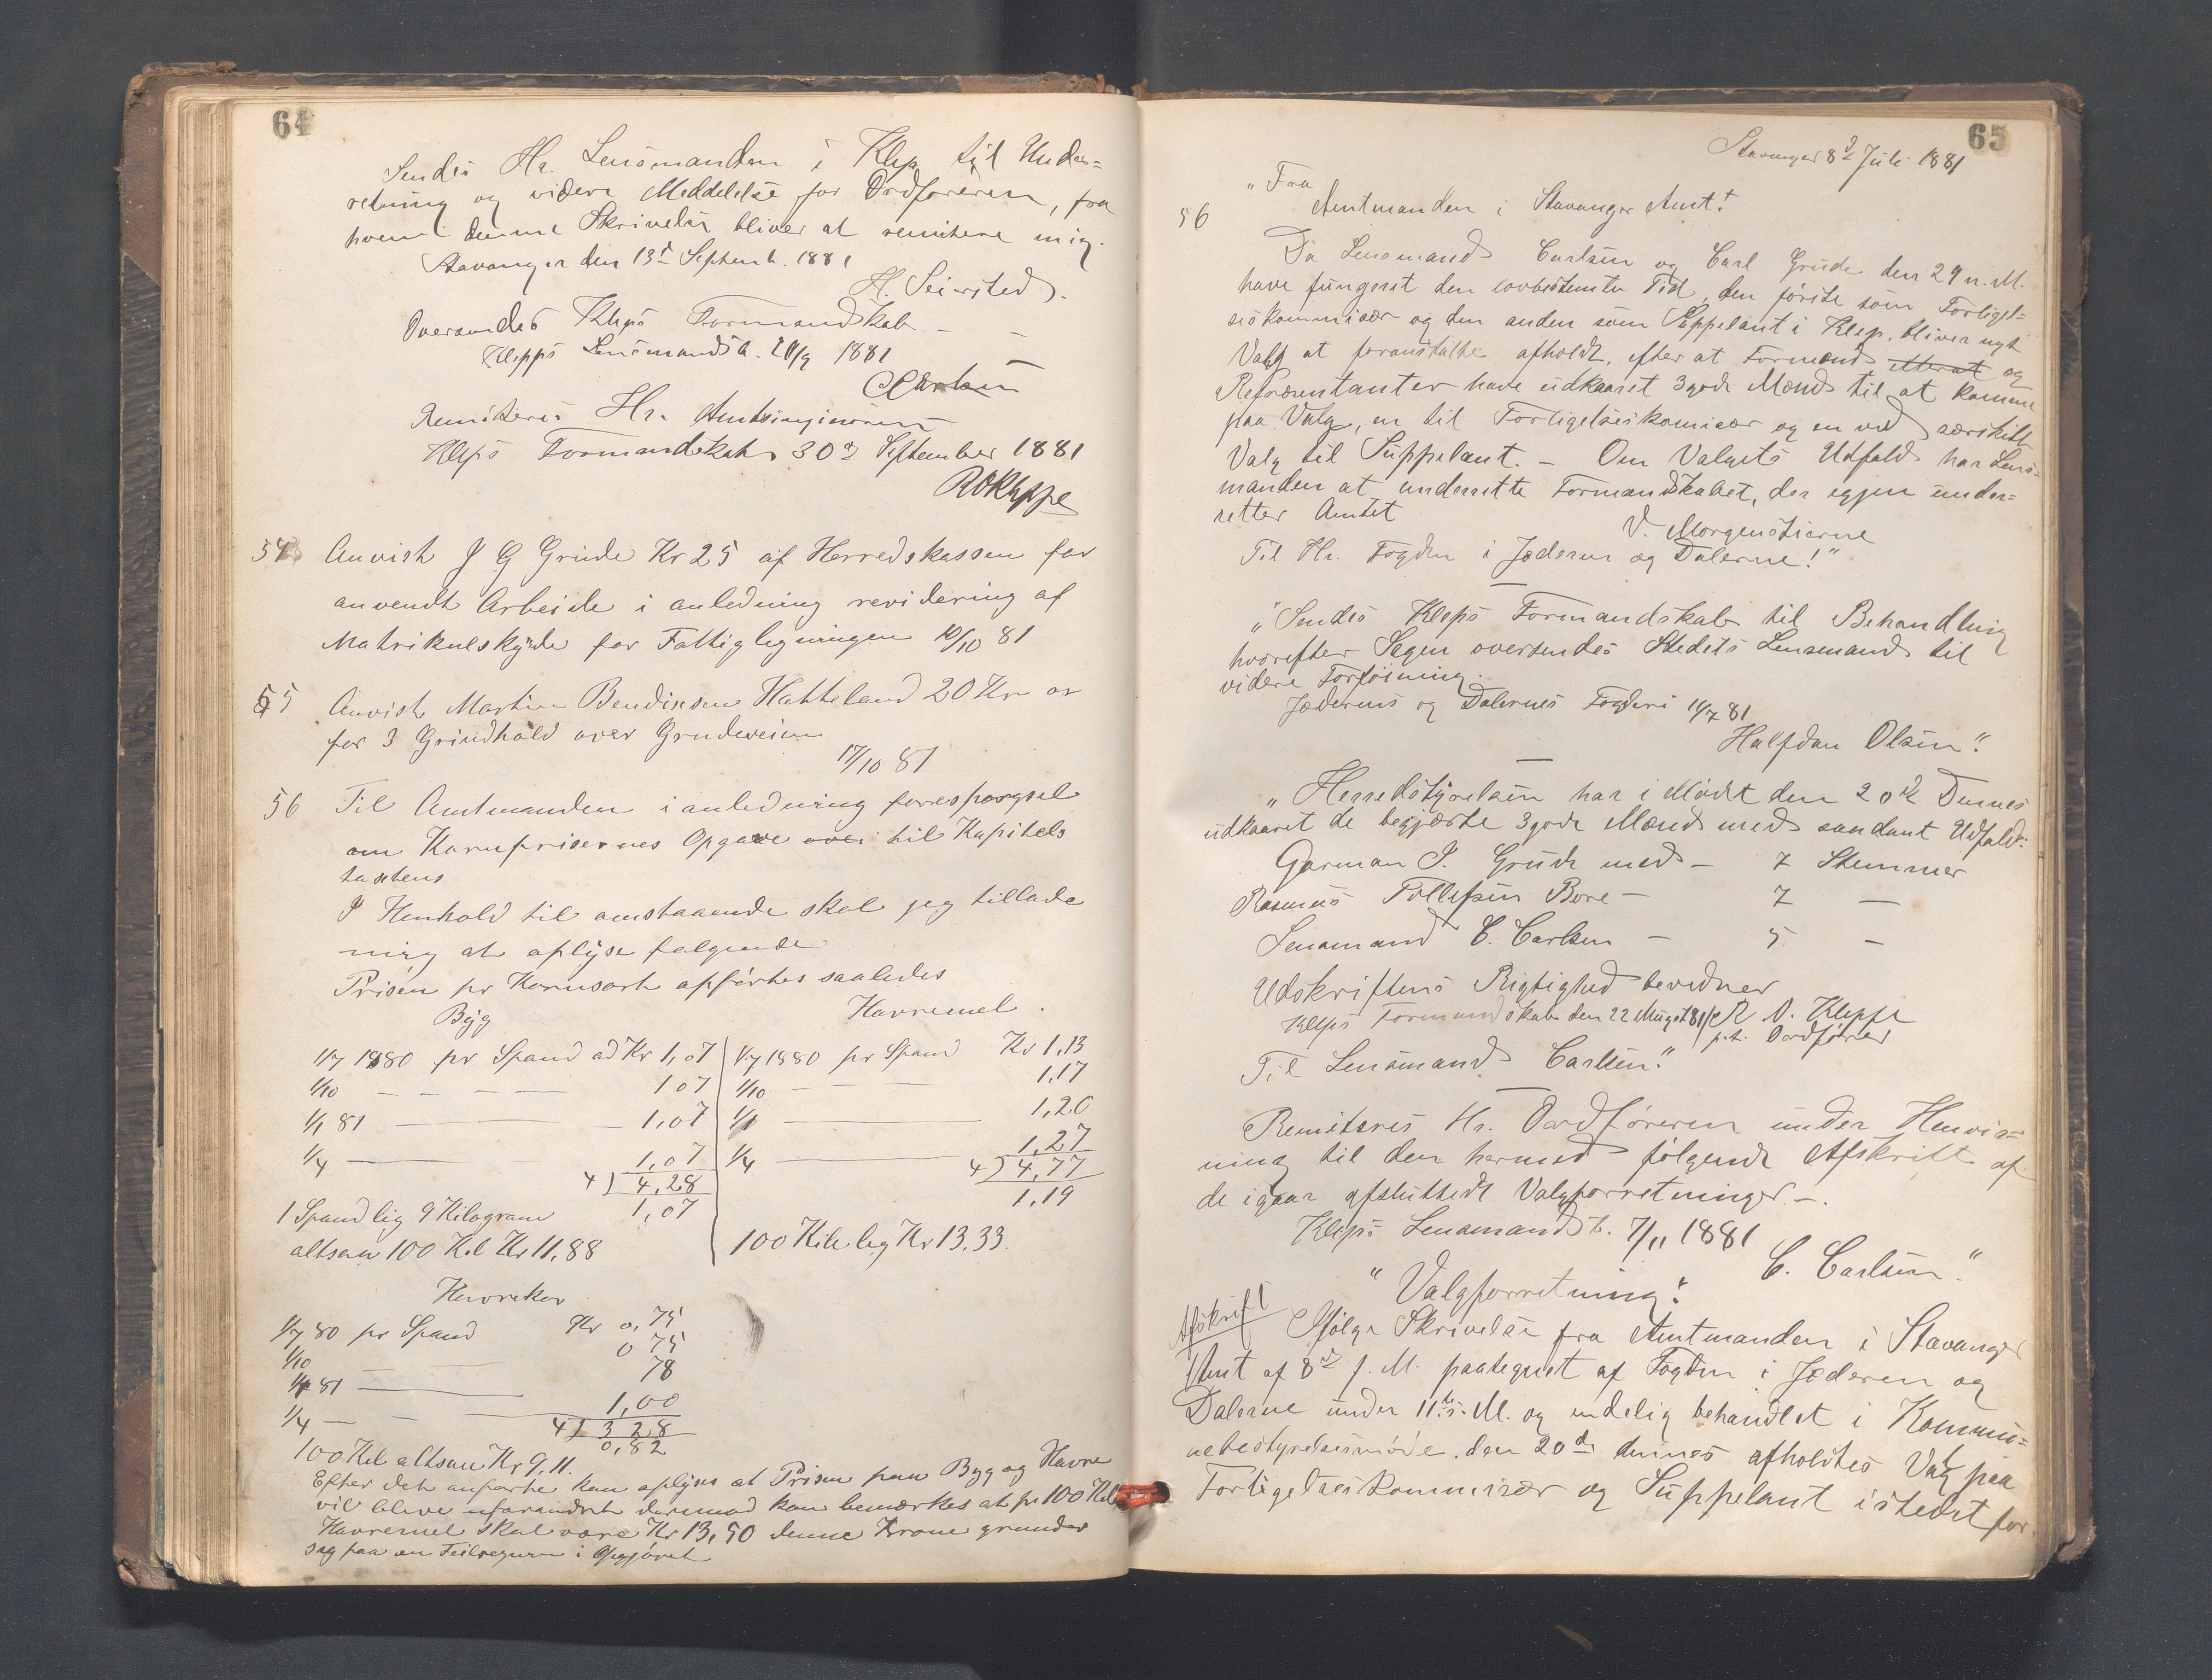 64
Sendes Hr. Lensmanden i Klep til Under=
retning og videre Meddelelse for Ordføreren, fra
hvem denne Skrivelse bliver at remitere mig.
Stavanger den 13de Septemb. 1881
H. Seiersted.
Oversendes Kleps Formandskab
Klepps Lensmandsb. 20/9 1881
CCarlsen
Remiteres Hr. Amtsingeniøren
Kleps Formandskab 30d September 1881
ROKleppe
54 Anvist J G Grude Kr 25 af Herredskassen for
anvendt Arbeide i anledning revidering af
Matrikulskylde for Fattigligningen 10/10 81
55 Anvist Martin Bendixsen Hatteland 20 Kr
for 3 Grindhold over Grudeveien
17/10 81
56 Til Amtmanden i anledning forespørgsel
om Kornprisernes Opgave over til Kapitels
taxtens
I Henhold til omstaaende skal jeg tillade
mig at oplyse følgende
Prisen pr Kornsort opførtes saaledes
Byg
Havremel
1/7 1880 pr Spand ad Kr 1,07 1/7 1880 pr Spand Kr 1,13
1/10 — — — 107 1/10 — — — 1,17
1/1 81 — 1,07 1/1 — 1,20
1/4 — 1,07 1/4 — 1,27
4) 4,28 4) 4,77
1,07 1,19
1 Spand lig 9 Kilogram
altsaa 100 Kil Kr 11,88 100 Kile lig Kr 13,33.
Havrekor
1/7 80 pr Spand Kr 0,75
1/10 — — 0 75
1/1 81 — 78
1/4 — — 1,00
4) 3 28
0,82
100 Kil altsaa Kr 9,11.
Efter det anførte kan oplyses at Prisen paa Byg og Havre
vil blive uforandret derimod kan bemærkes at pr 100 Kil
Havremel skal være Kr 13,50 denne Krone grunder
sig paa en Feilregning i Opgjøret
65
Stavanger 8d Juli 1881
"Fra
56 Amtmanden i Stavanger Amt!
Da Lensmand Carlsen og Carl Grude den 29 n. M.
have fungeret den lovbestemte Tid, den første som Forligel=
seskommisær og den anden som Suppelant i Klep, bliver nyt
Valg at foranstalte afholdt, efter at Formænd atterat og
Repræsentanter have udkaaret 3 gode Mænd til at komme
paa Valg, en til Forligelseskomisær og en ved særskilt
Valg til Suppelant. – Om Valgets Udfald har Lens=
manden at underrette Formandskabet, der igjen under=
retter Amtet
V. Morgenstierne
Til Hr. Fogden i Jæderen og Dalerne!"
"Sendes Kleps Formandskab til Behandling
hvorefter Sagen oversendes Stedets Lensmand til
videre Forføining.
Jæderens og Dalernes Fogderi 11/7 81
Halfdan Olsen".
"Herredstyrelsen har i Mødet den 20de Dennes
udkaaret de begjærte 3 gode Mænd med saadant Udfald:
Garman P. Grude med – 7 Stemmer
Rasmus Tollefsen Bore – 7 —
Lensmand C. Carlsen – 5 –
Udskriftens Rigtighed bevidner
Kleps Formandskab den 22 August 81 R O. Kleppe
p.t. Ordfører
Til Lensmand Carlsen."
Remiteres Hr. Ordføreren under Henvis=
ning til den hermed følgende Afskrift af
de igaar afsluttede Valgforretninger –.
Kleps Lensmandsb. 7/11 1881
C. Carlsen".
"Valgforretning".
Afskrift Ifølge Skrivelse fra Amtmanden i Stavanger
Amt af 8de f. M. paategnet af Fogden i Jæderen og
Dalerne under 11te s. M. og endelig behandlet i Kommu=
nebestyrelsesmøde den 20de dennes afholdtes Valg paa
Forligelseskommisær og Suppelant istedet for